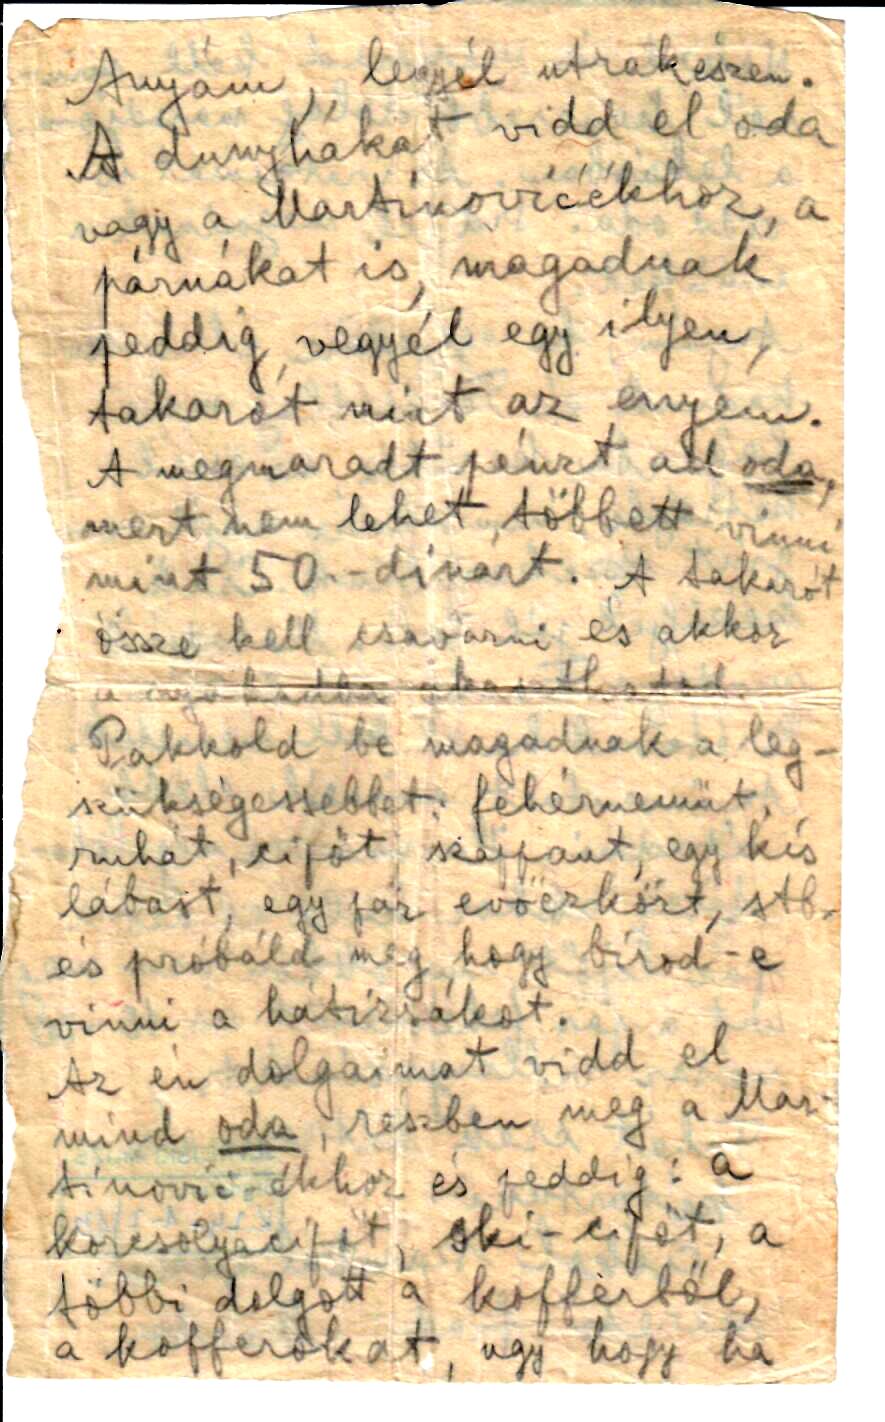 Anyám, legyél utrakészen.
A dunyhákat vidd el oda
vagy a Martinovićékhoz, a
párnákat is, magadnak
peddig vegyél egy ilyen,
takarót mint az enyém.
A megmaradt pénzt ad oda,
mert nem lehet többett vinni
mint 50.-dinárt. A takarót
össze kell csavarni és akkor
a
Pakkold be magadnak a leg-
szükségessebbet: fehérnemüt,
ruhát, cipőt, szappant, egy kis
lábast, egy pár evőczkőrt, stb.
és próbáld meg hogy birod-e
vinni a hátizsákot.
Az én dolgaimat vidd el
mind oda, részben meg a Mar-
tinović-ékhoz és peddig: a
korcsolyacipőt, ski-cipőt, a
többi dolgott a kofferből,
a kofferokat, ugy hogy ha